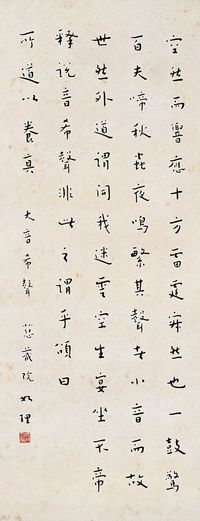 空然而響應十方雷霆寂然也一鼓驚
百夫啼秋蟲夜鳴繁其聲者小音而故
世然外道謂問我迷雲空生宴坐不帝
釋說音希聲非此之謂乎頌曰
所道以養真 大音希聲 慈院如理